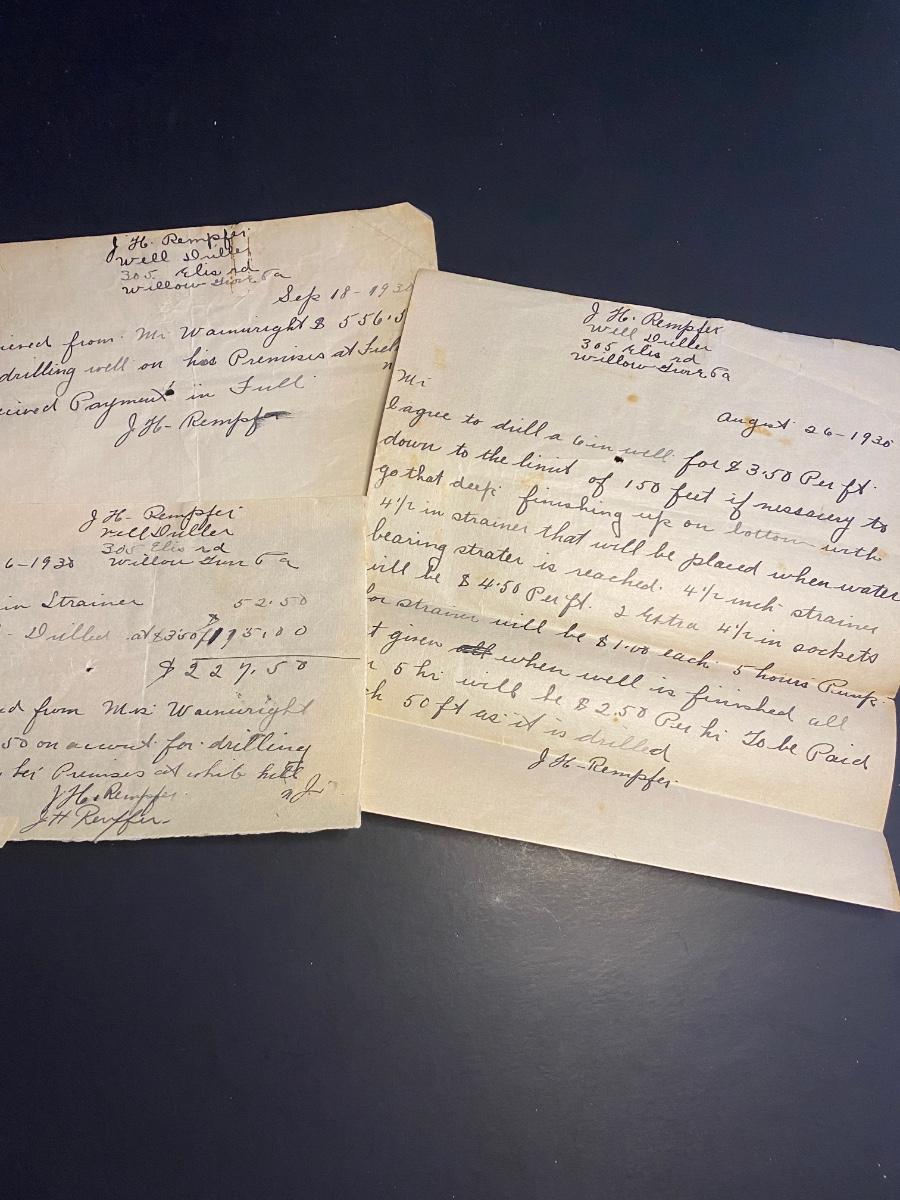 J. H. Rempfer.
Well Driller
305 Elis rd
Willow Grove Pa
Sep 18-1930
from Mr Wainwright $ 556.5
drilling well on his Premises at
Payment in Full
J-H-Rempfer
J-H-Rempfer
Well Driller
305 Elis rd
6-1930 Willow Grove Pa
in Strainer 52.50
Drilled at $3.50 175.00
$ 227.50
ed from Mrs Wainwright
50 on account for drilling
her Premises at white hill
n J.
J.H. Rempfer.
J H Rempfer-
J. H. Rempfer
Well Driller
305 Elis rd
Willow Grove Pa
Mr
august 26-1930
I agree to drill a 6 in well for $3.50 Per ft.
down to the limit of 150 feet if nessacery to
go that deep. finishing up on bottom with
4 1/2 in strainer that will be placed when water
bearing strater is reached. 4 1/2 inch strainer
will be $4.50 Per ft. 2 Extra 4 1/2 in sockets
for strainer will be $1.00 each. 5 hours Pump-
t given when well is finished all
5 hr will be $2.50 Per hr To be Paid
h 50 ft as it is drilled
J-H-Rempfer.